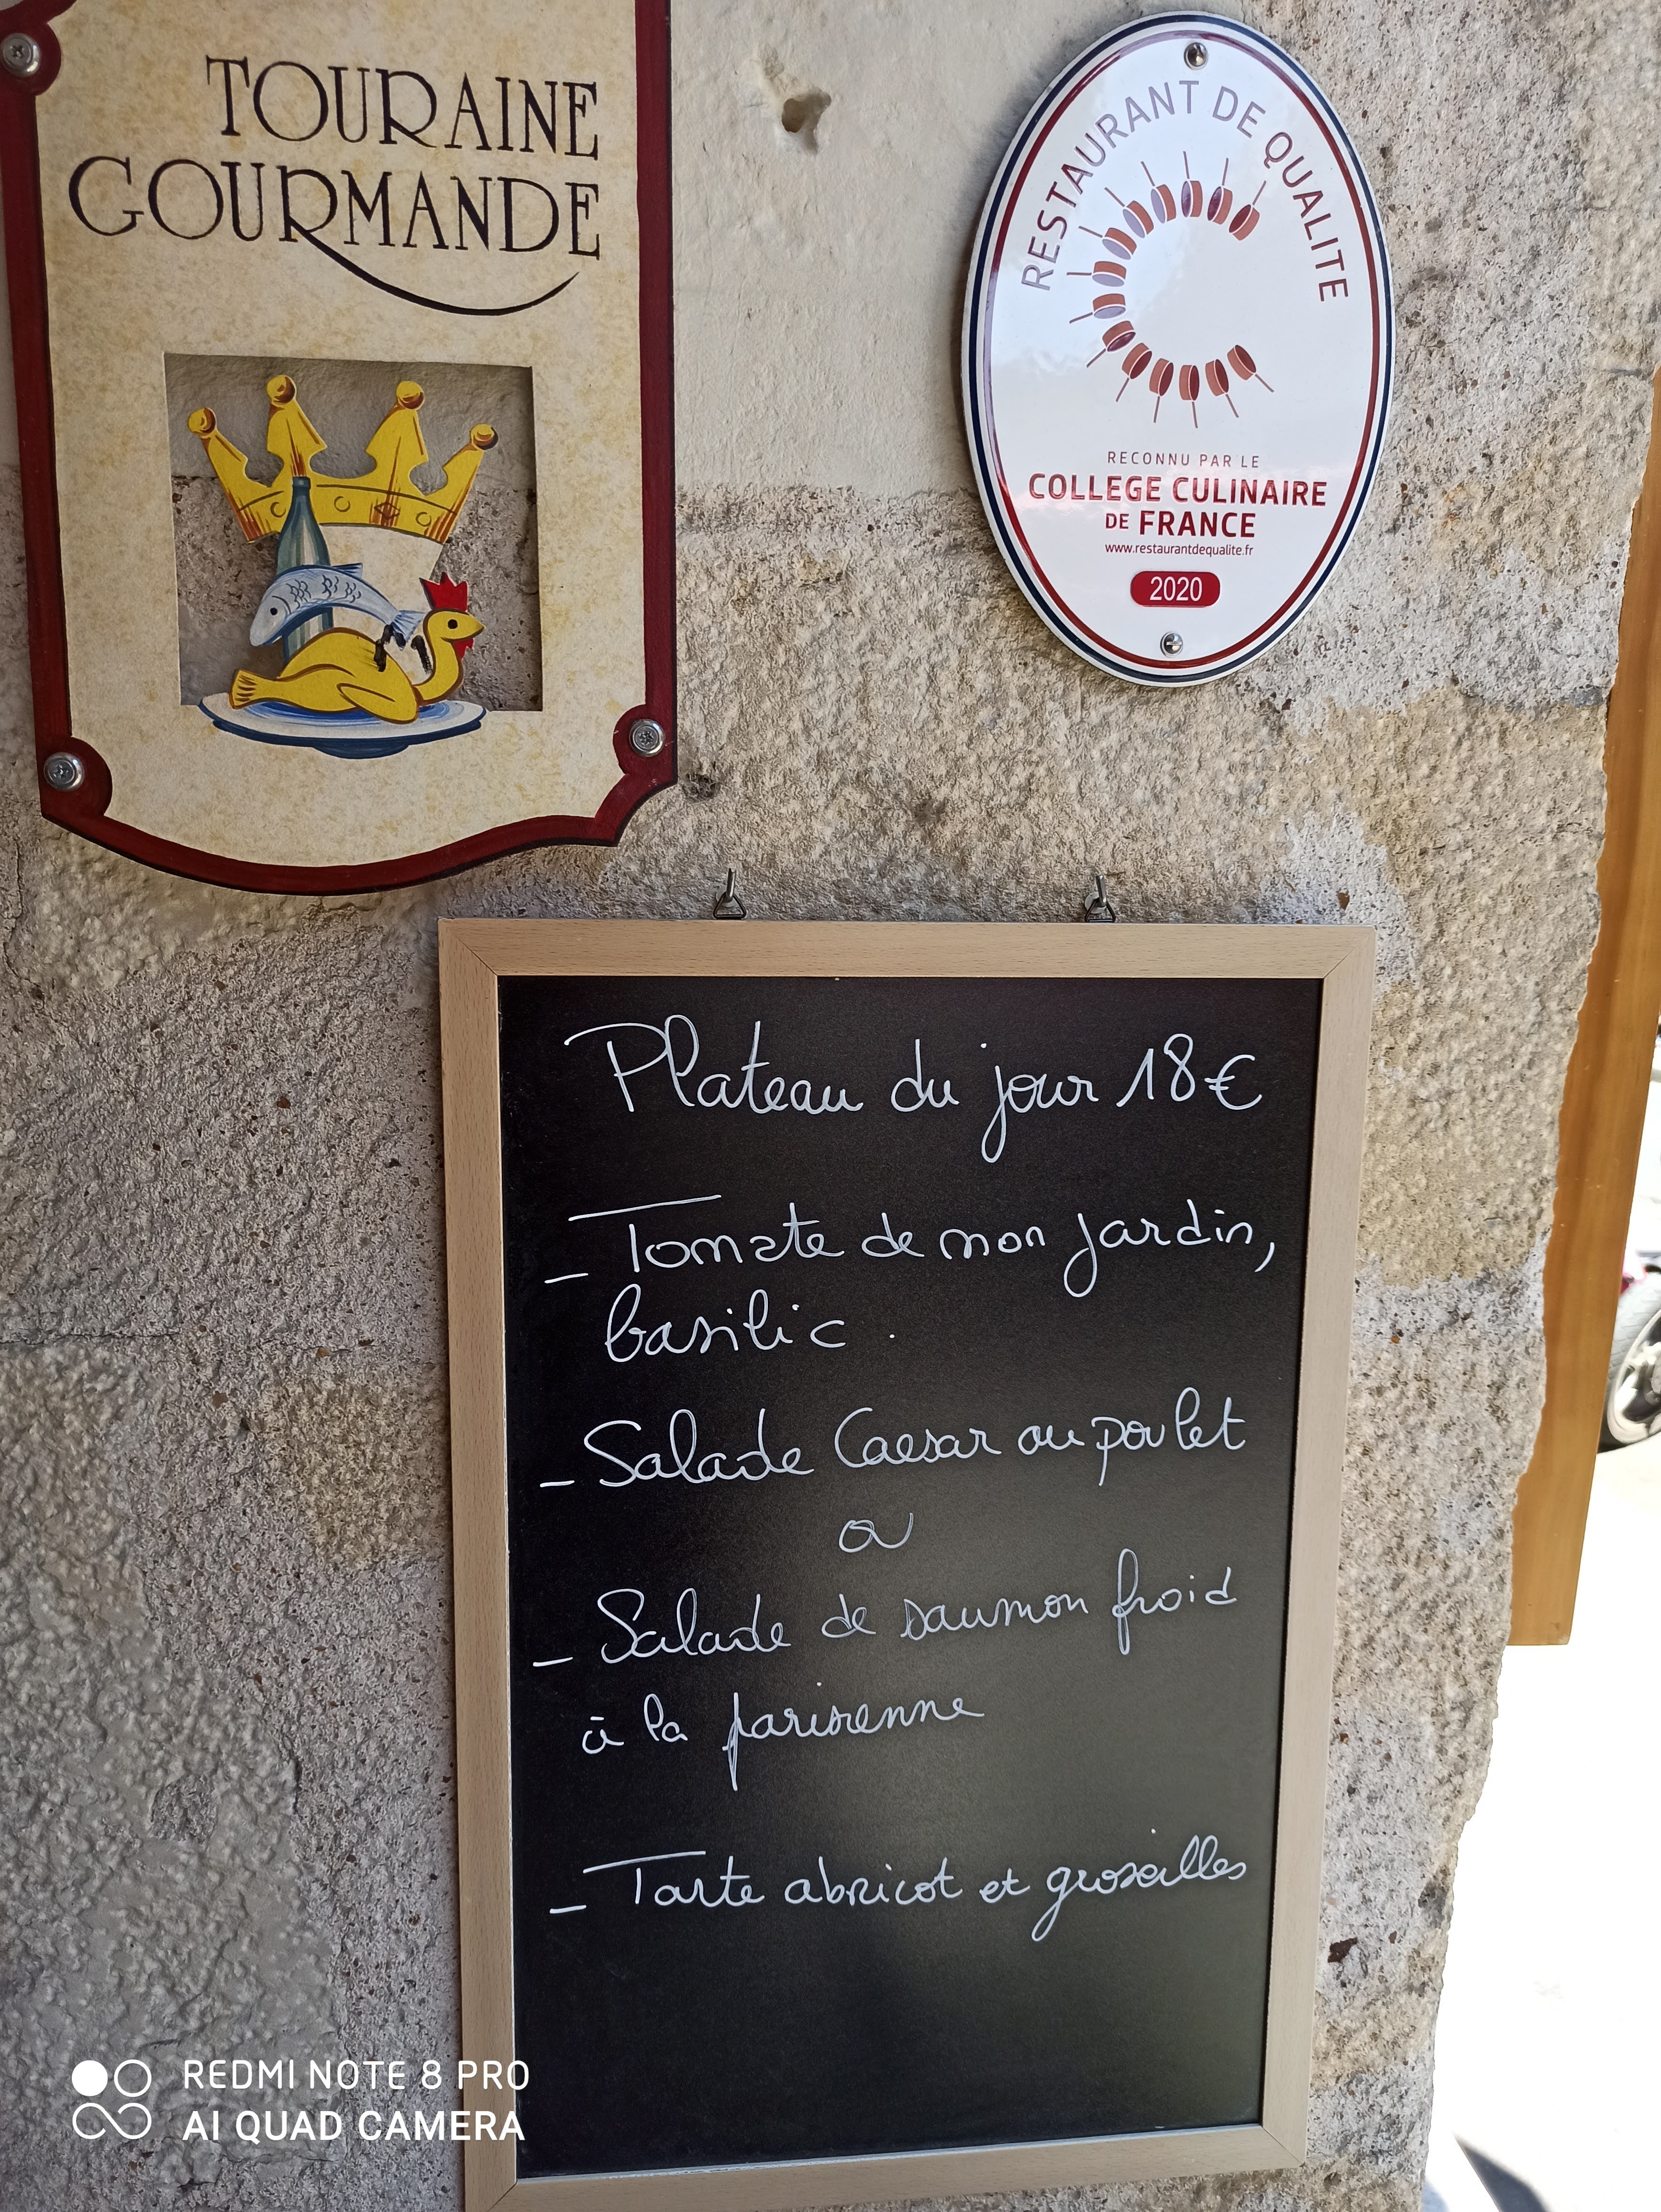 TOURAINE
GOURMANDE
RESTAURANT DE QUALITE
RECONNU PAR LE
COLLEGE CULINAIRE
DE FRANCE
www.restaurantdequalite.fr
2020
Plateau du jour 18€
- Tomate de mon jardin,
basilic.
- Salade Caesar au poulet
ou
- Salade de saumon froid
à la parisienne
- Tarte abricot et groseilles
REDMI NOTE 8 PRO
AI QUAD CAMERA